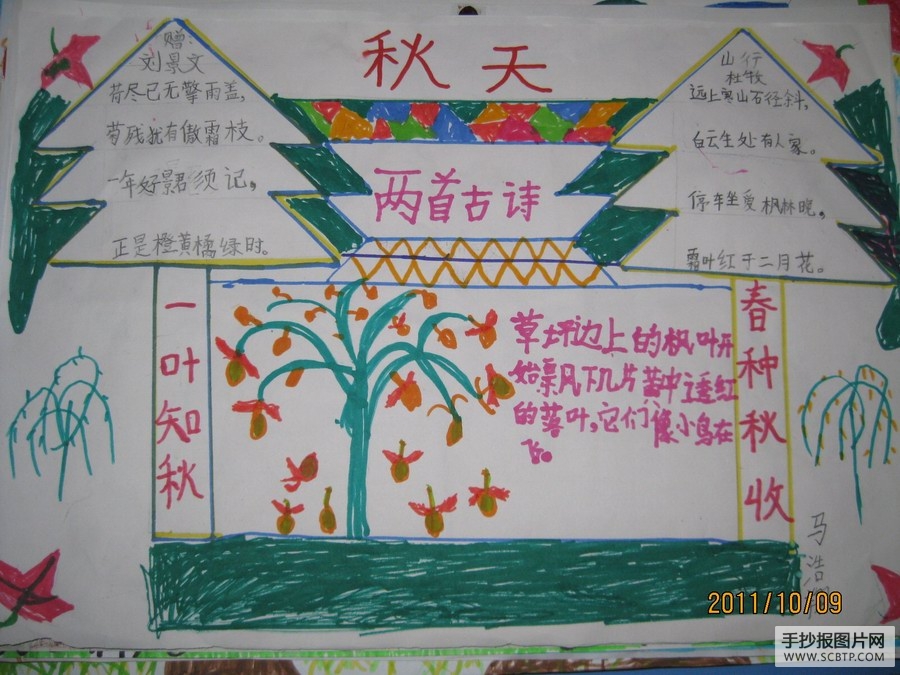 秋天
赠
刘景文
荷尽已无擎雨盖,
菊残犹有傲霜枝。
一年好景君须记,
正是橙黄橘绿时。
两首古诗
山行
杜牧
远上寒山石径斜,
白云生处有人家。
停车坐爱枫林晚,
霜叶红于二月花。
一叶知秋
草坪边上的枫叶开
始飘下几片黄中透红
的落叶,它们像小鸟在
飞。
春种秋收
马浩
2011/10/09
手抄报图片网
WWW.SCBTP.COM